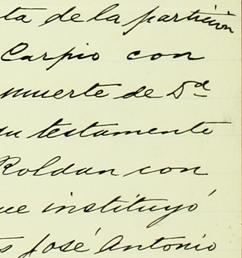 ta de la partición
Carpio con
muerte de Dᵈ
su testamento
Roldan con
ue instituyó
s José Antonio